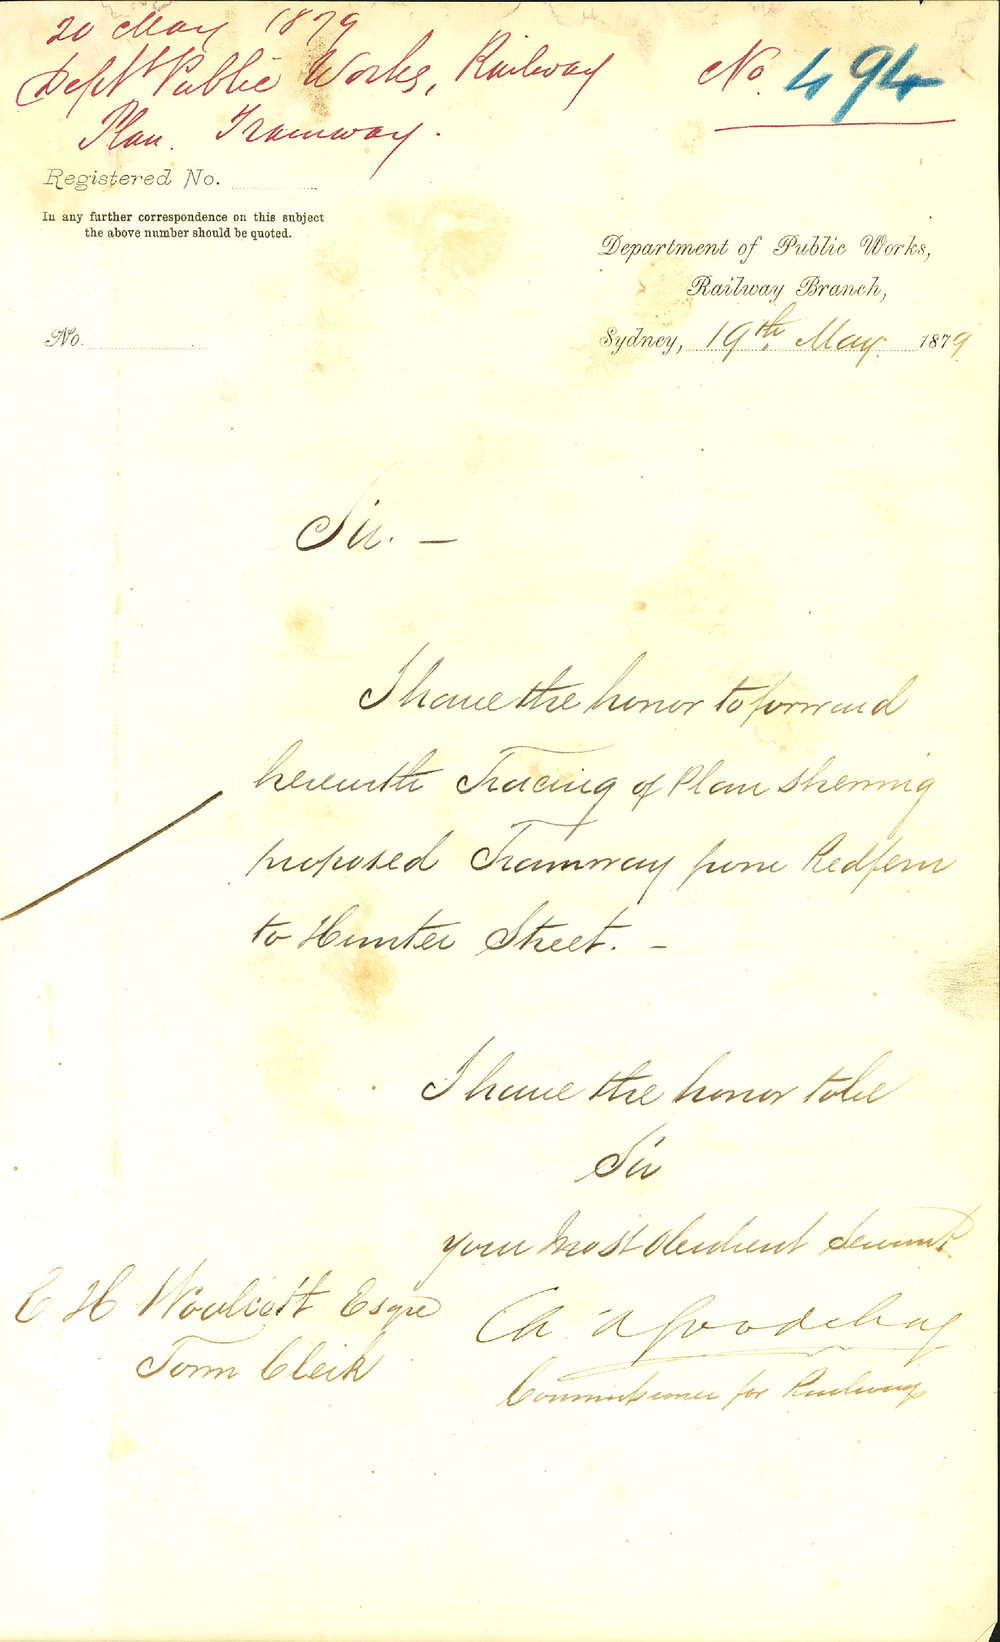 20 May 1879
Dept Public Works, Railway
Plan. Tramway.
No. 494
Registered No.
In any further correspondence on this subject
the above number should be quoted.
Department of Public Works,
Railway Branch,
No.
Sydney, 19th May 1879
Sir. —
I have the honor to forward
herewith Tracing of Plan shewing
proposed Tramway from Redfern
to Hunter Street. —
I have the honor to be
Sir
your most obedient Servant
C H Woolcott Esqre
Town Clerk
Ch A Goodchap
Commissioner for Railways